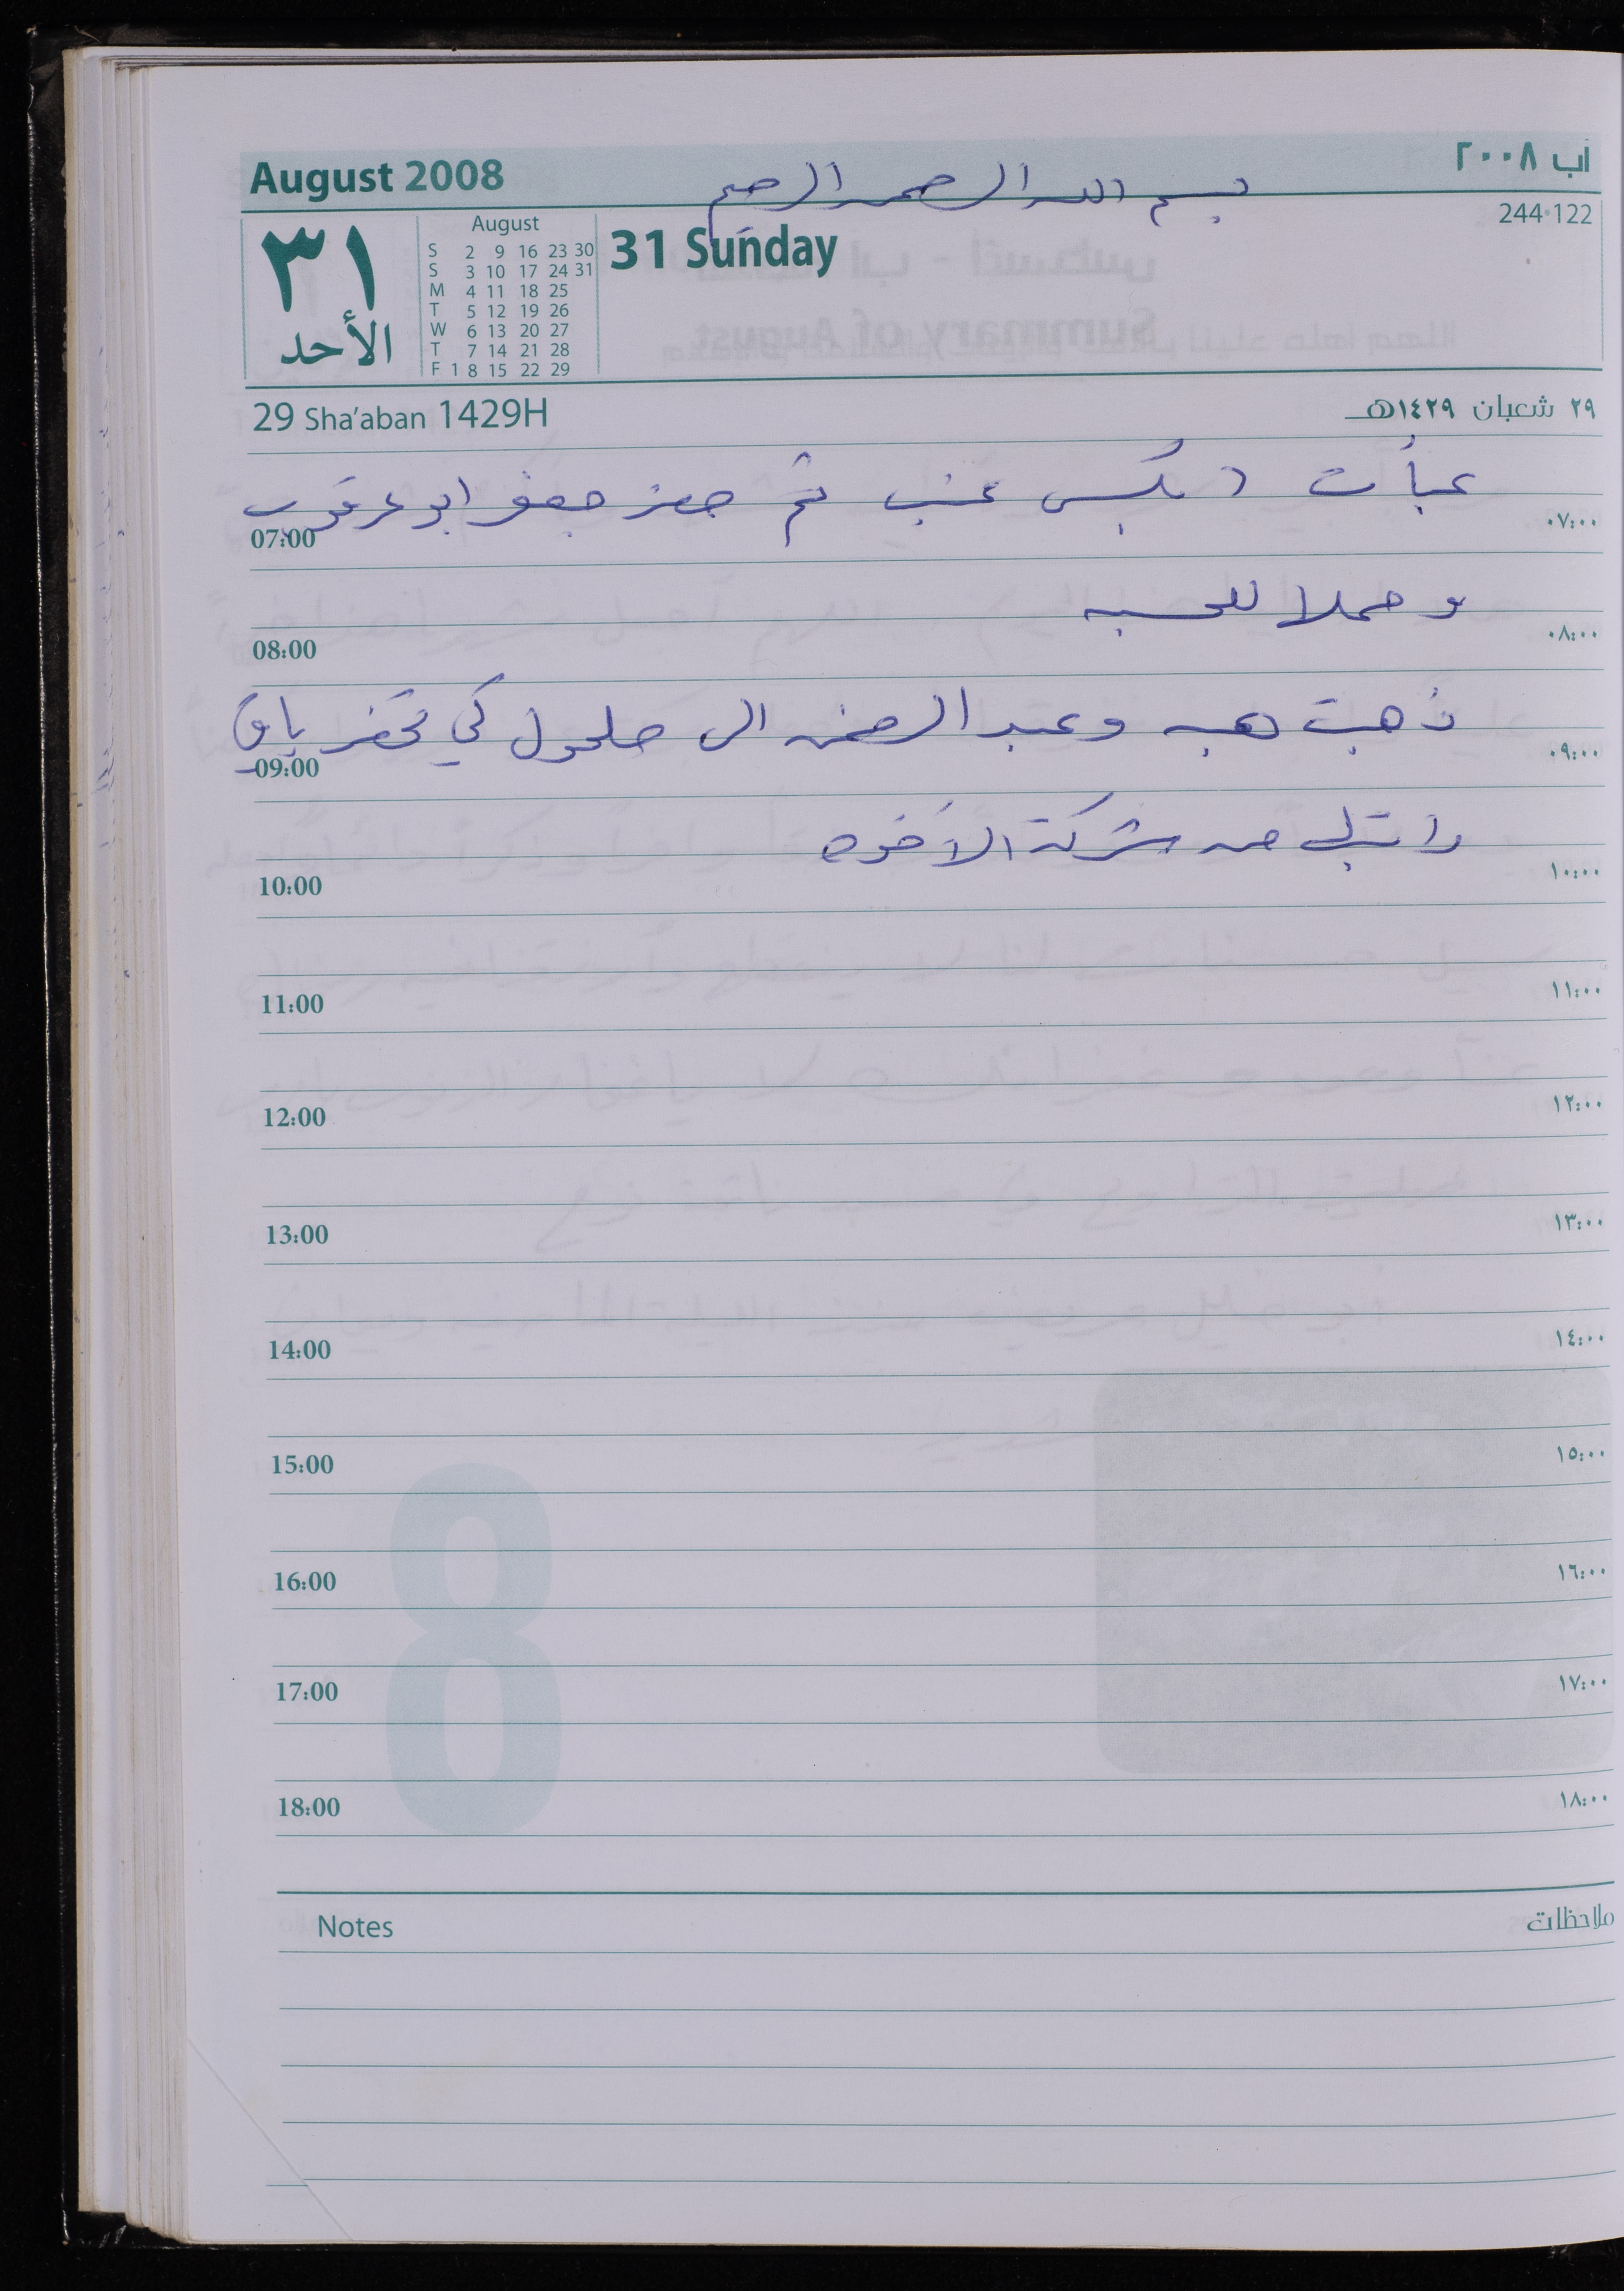 August 2008
بسم الله الرحمن الرحيم
آب ٢٠٠٨
244·122
٣١
الأحد
August
S 2 9 16 23 30
S 3 10 17 24 31
M 4 11 18 25
T 5 12 19 26
W 6 13 20 27
T 7 14 21 28
F 1 8 15 22 29
31 Sunday
29 Sha'aban 1429H
٢٩ شعبان ١٤٢٩هـ
عبأت بكس عنب ثم حضر جعفر ابو عرقوب
07:00 ٠٧:٠٠
و حملا للحسبه
08:00 ٠٨:٠٠
ذهبت هبه وعبد الرحمن الى حلحول كي تحضر باقي
09:00 ٠٩:٠٠
راتبي من شركة الأخوه
10:00 ١٠:٠٠
11:00 ١١:٠٠
12:00 ١٢:٠٠
13:00 ١٣:٠٠
14:00 ١٤:٠٠
15:00 ١٥:٠٠
16:00 ١٦:٠٠
17:00 ١٧:٠٠
18:00 ١٨:٠٠
8
Notes ملاحظات